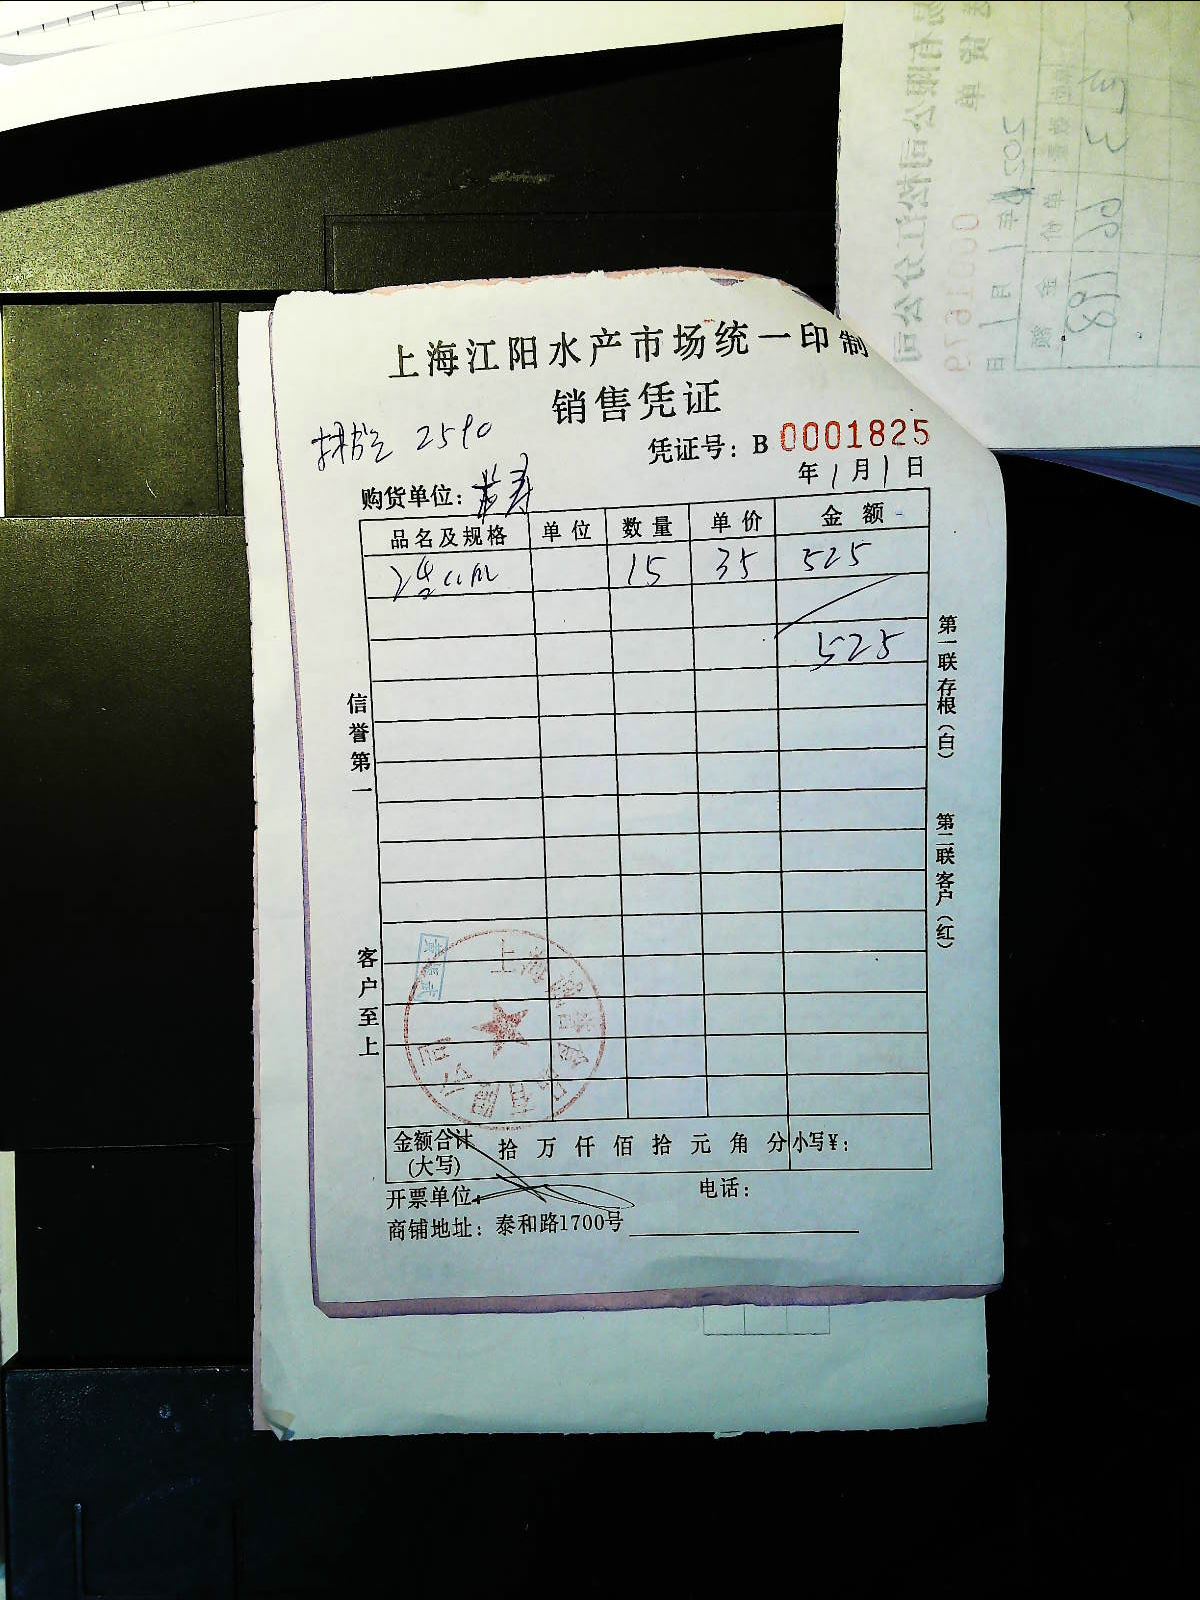 上海江阳水产市场统一印制
销售凭证
2590
凭证号：B 0001825
年1月1日
购货单位：
品名及规格 单位 数量 单价 金额
15 35 525
525
信誉第一
客户至上
第一联存根（白）
第二联客户（红）
金额合计(大写) 拾万仟佰拾元角分 小写¥：
开票单位
电话：
商铺地址：泰和路1700号